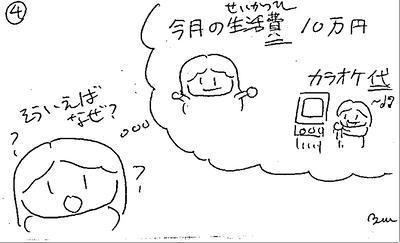 ④
せいかつひ
今月の生活費 10万円
カラオケ代
そういえば
なぜ?
? ?